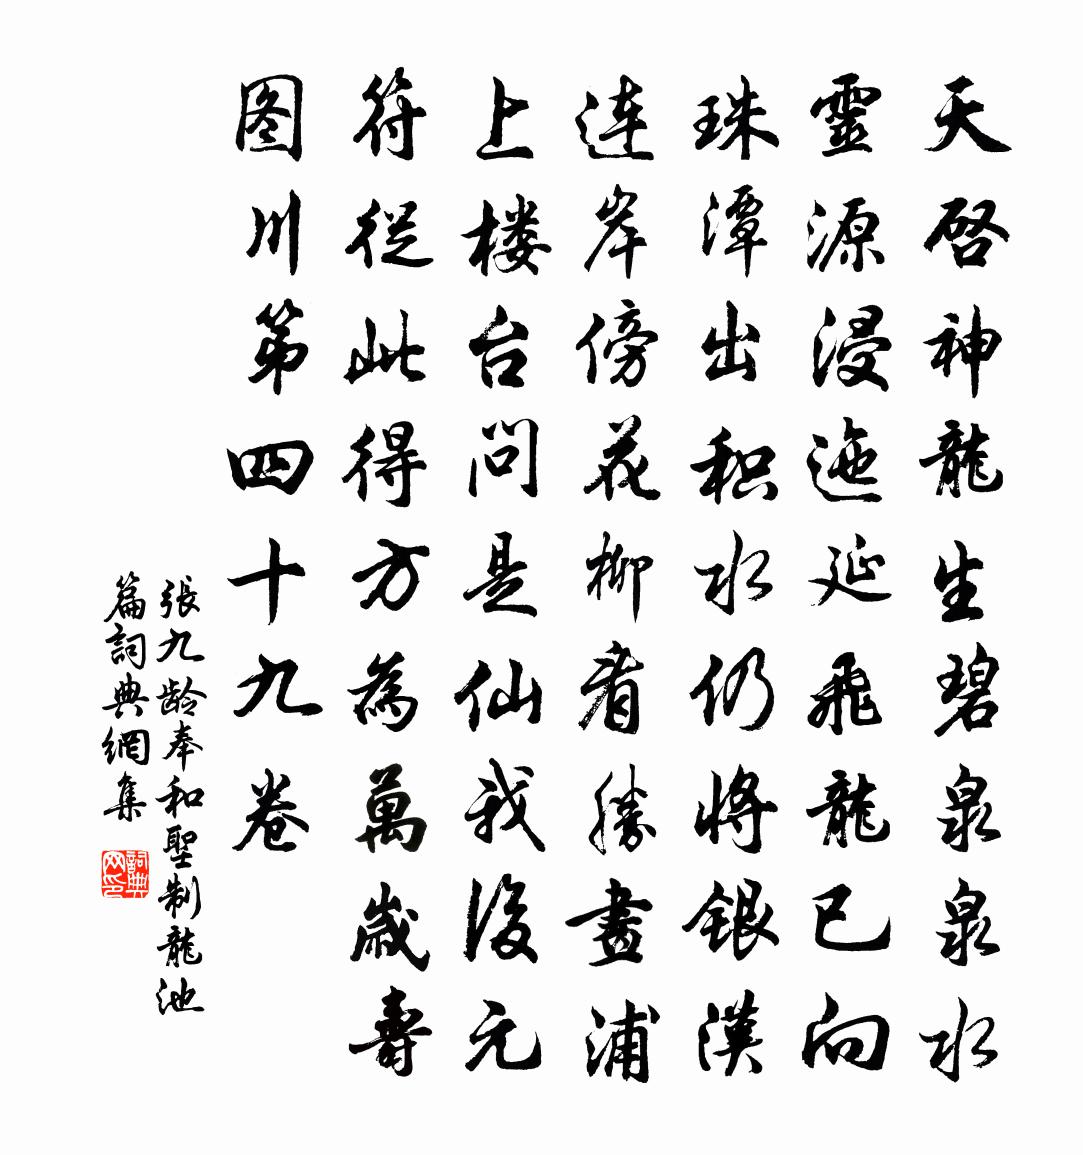 天啓神龍生碧泉泉水
靈源浸迤延飛龍已向
珠潭出积水仍將銀漢
連岸傍花柳看勝畫浦
上楼台問是仙我後元
符從此得方為萬歲壽
图川第四十九卷
張九龄奉和聖制龍池
篇詞典網集
詞典网印